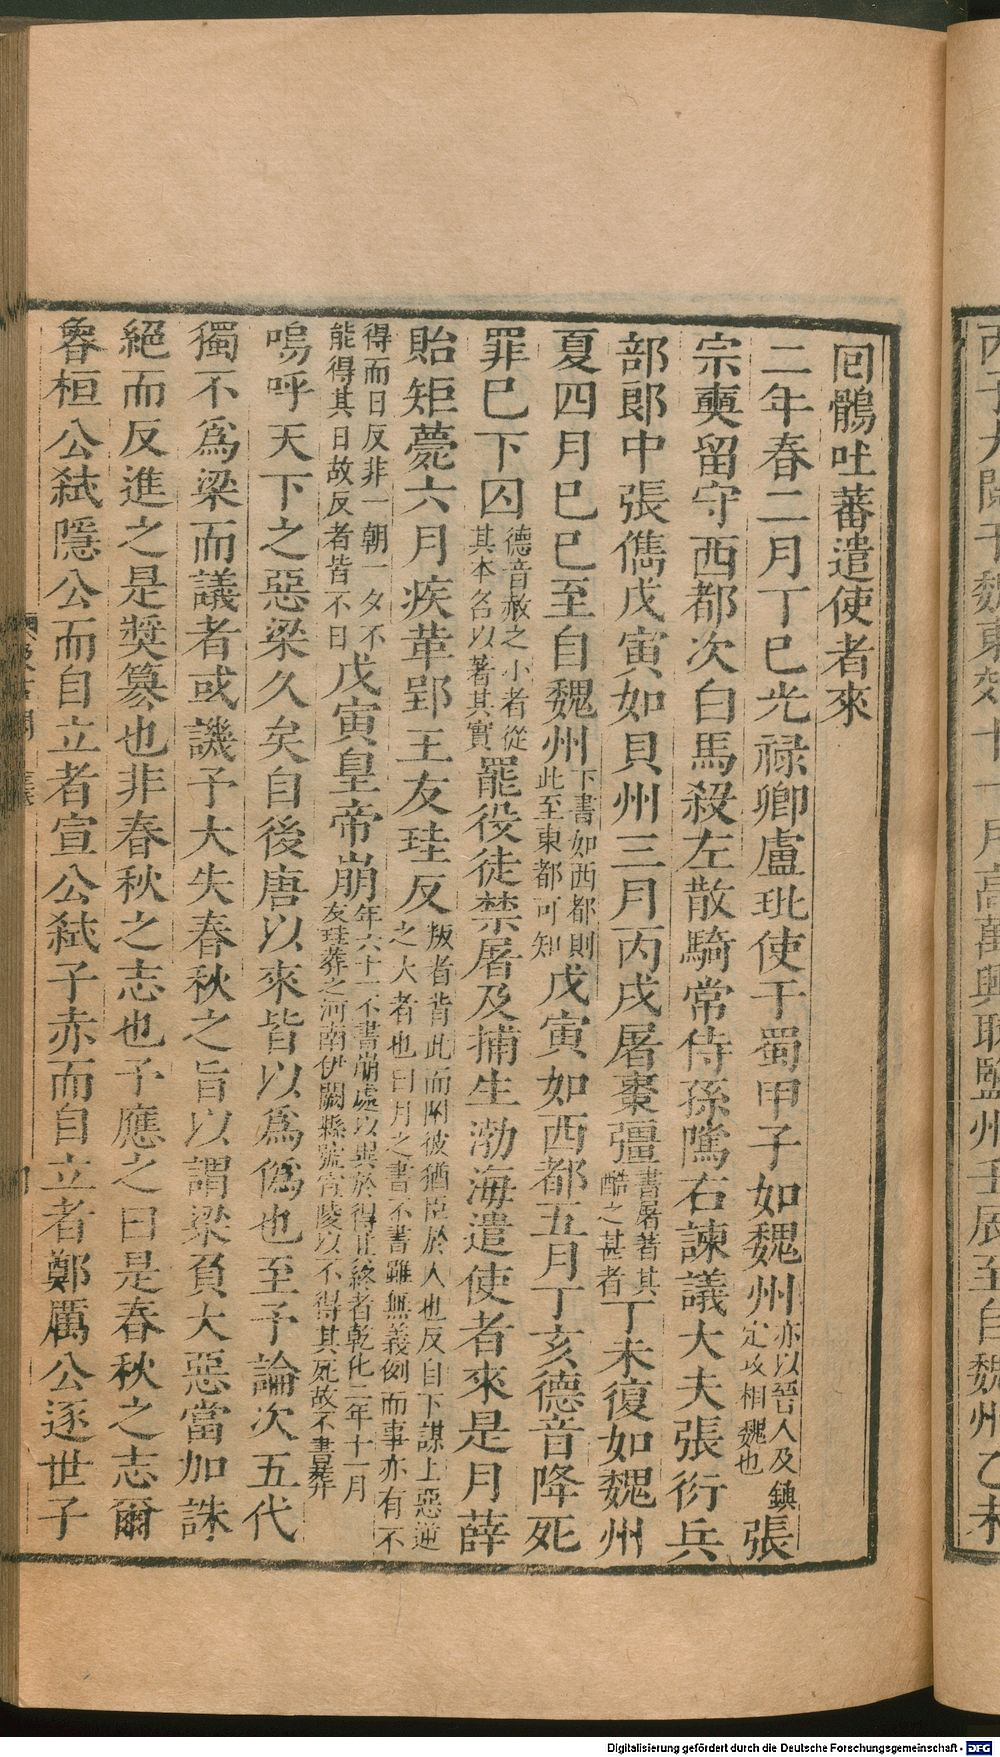 回鶻吐蕃遣使者來
二年春二月丁巳光祿卿盧玭使于蜀甲子如魏州亦以晉人及鎮定攻相魏也張
宗奭留守西都次白馬殺左散騎常侍孫騭右諫議大夫張衍兵
部郎中張儁戊寅如貝州三月丙戌屠棗彊書屠著其酷之甚者丁未復如魏州
夏四月己巳至自魏州下書如西都則此至東都可知戊寅如西都五月丁亥德音降死
罪已下囚德音赦之小者從其本名以著其實罷役徒禁屠及捕生渤海遣使者來是月薛
貽矩薨六月疾革郢王友珪反叛者背此而附彼猶臣於人也反自下謀上惡逆之大者也日月之書不書雖無義例而事亦有不
得而日反非一朝一夕不能得其日故反者皆不日戊寅皇帝崩年六十一不書崩處以異於得正終者乾化二年十一月友珪葬之河南伊闕縣號宣陵以不得其死故不書葬
嗚呼天下之惡梁久矣自後唐以來皆以爲僞也至予論次五代
獨不爲梁而議者或譏予大失春秋之旨以謂梁負大惡當加誅
絕而反進之是奬簒也非春秋之志也予應之曰是春秋之志爾
魯桓公弑隱公而自立者宣公弑子赤而自立者鄭厲公逐世子
Digitalisierung gefördert durch die Deutsche Forschungsgemeinschaft - DFG